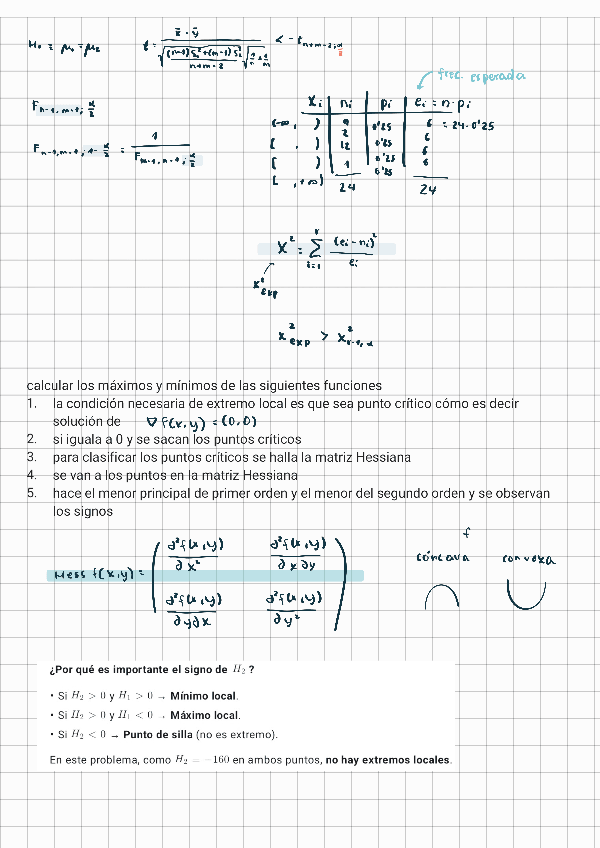 H₀ ≡ μ₁ = μ₂
t = (x̄ - ȳ) / (√(((n-1)S₁²+(m-1)S₂²)/(n+m-2)) √(1/n + 1/m)) < -t n+m-2;α
frec. esperada
F n-1, m-1; α/2
F n-1, m-1; 1-α/2 = 1 / F m-1, n-1; α/2
xᵢ nᵢ pᵢ eᵢ = n·pᵢ
(-∞, ) 9 0'25 6 = 24·0'25
[ , ) 2 0'25 6
[ ) 12 0'25 6
[ , +∞) 1 0'25 6
24 24
χ² = Σ i=1 r (eᵢ - nᵢ)² / eᵢ
χ² exp
χ² exp > χ² r-1, α
calcular los máximos y mínimos de las siguientes funciones
1. la condición necesaria de extremo local es que sea punto crítico cómo es decir
solución de ∇f(x,y) = (0,0)
2. si iguala a 0 y se sacan los puntos críticos
3. para clasificar los puntos críticos se halla la matriz Hessiana
4. se van a los puntos en la matriz Hessiana
5. hace el menor principal de primer orden y el menor del segundo orden y se observan
los signos
Hess f(x,y) = ( ∂²f(x,y)/∂x² ∂²f(x,y)/∂x∂y
∂²f(x,y)/∂y∂x ∂²f(x,y)/∂y² )
f
cóncava convexa
¿Por qué es importante el signo de H₂?
• Si H₂ > 0 y H₁ > 0 → Mínimo local.
• Si H₂ > 0 y H₁ < 0 → Máximo local.
• Si H₂ < 0 → Punto de silla (no es extremo).
En este problema, como H₂ = −160 en ambos puntos, no hay extremos locales.